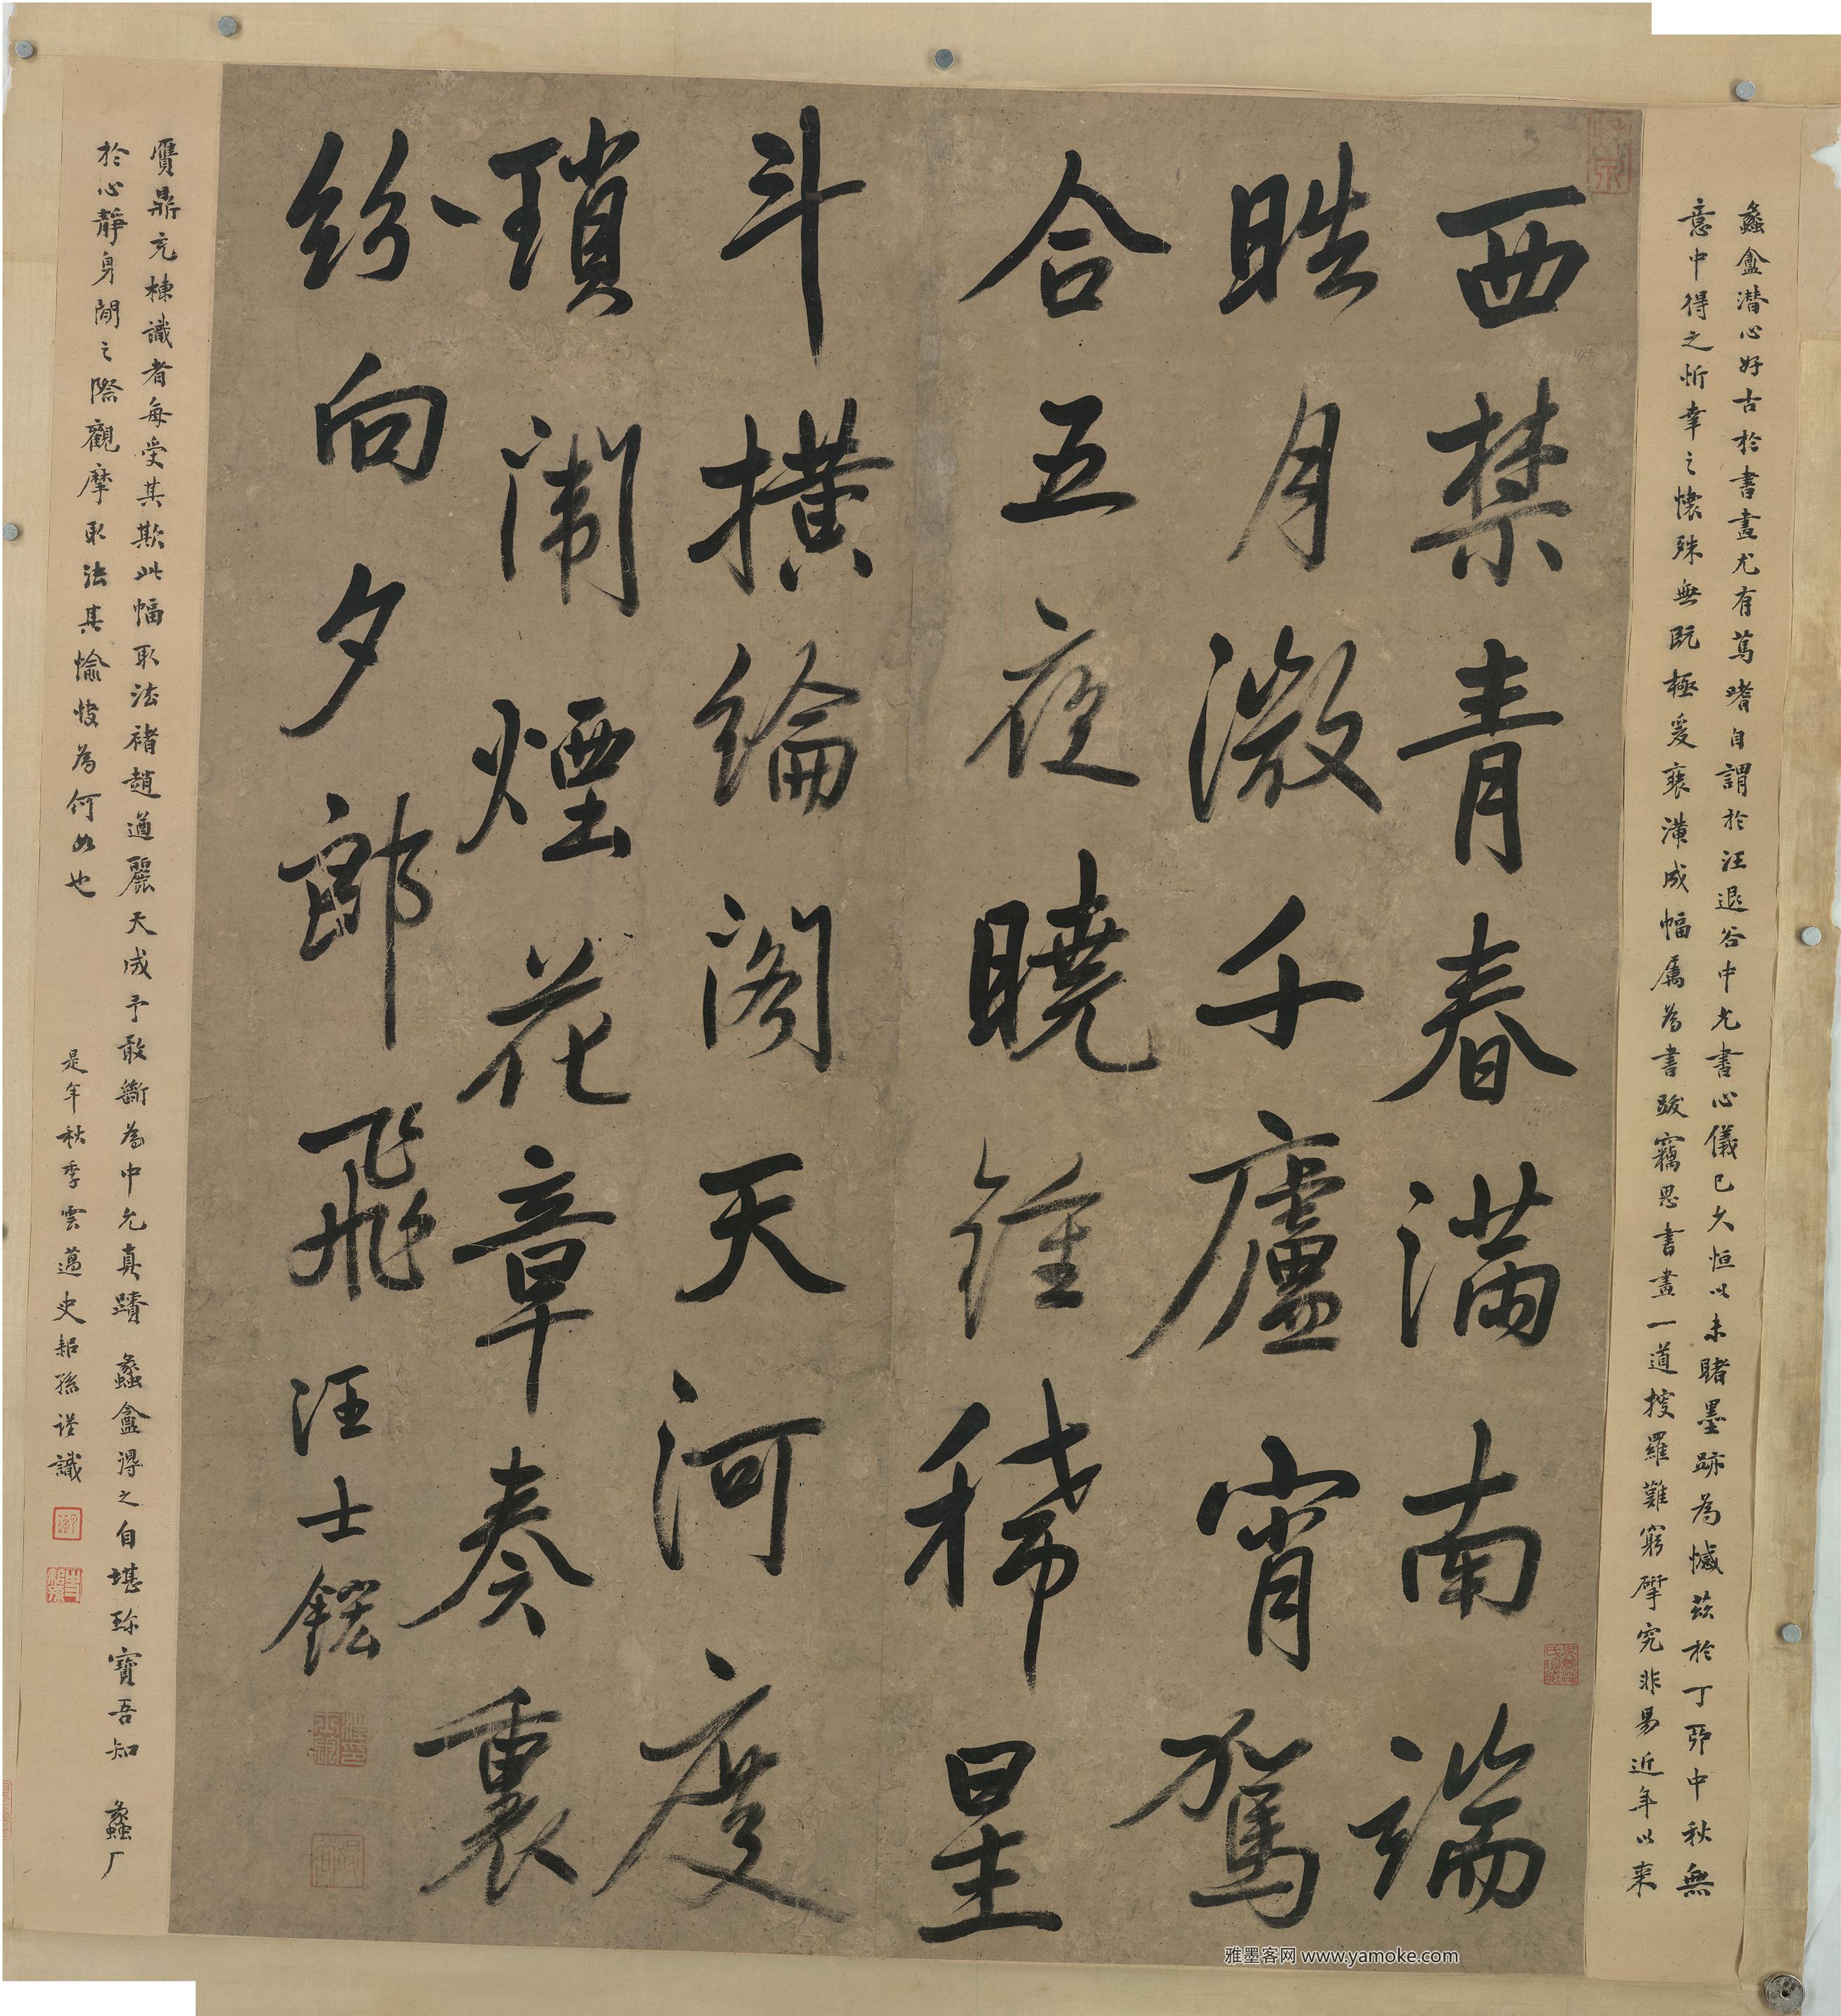 蠡盦潛心好古於書畫尤有篤嗜自謂於汪退谷中允書心儀已久恒以未睹墨跡為憾茲於丁卯中秋無
意中得之忻幸之懷殊無既極爰裝潢成幅屬為書跋竊思書畫一道搜羅難窮摩究非易近年以來
西禁青春滿南端
皓月澂千廬宵駕
合五夜曉鍾稀星
斗橫綸閣天河度
瑣闈煙花章奏裏
紛向夕郎飛
汪士鋐
贗鼎充棟識者每受其欺此幅取法褚趙遒麗天成予敢斷為中允真蹟蠡盦得之自堪珍寶吾知蠡厂
於心靜身閒之際觀摩取法其愉快為何如也
是年秋季雲邁史韜孫謹識
雅墨客网 www.yamoke.com